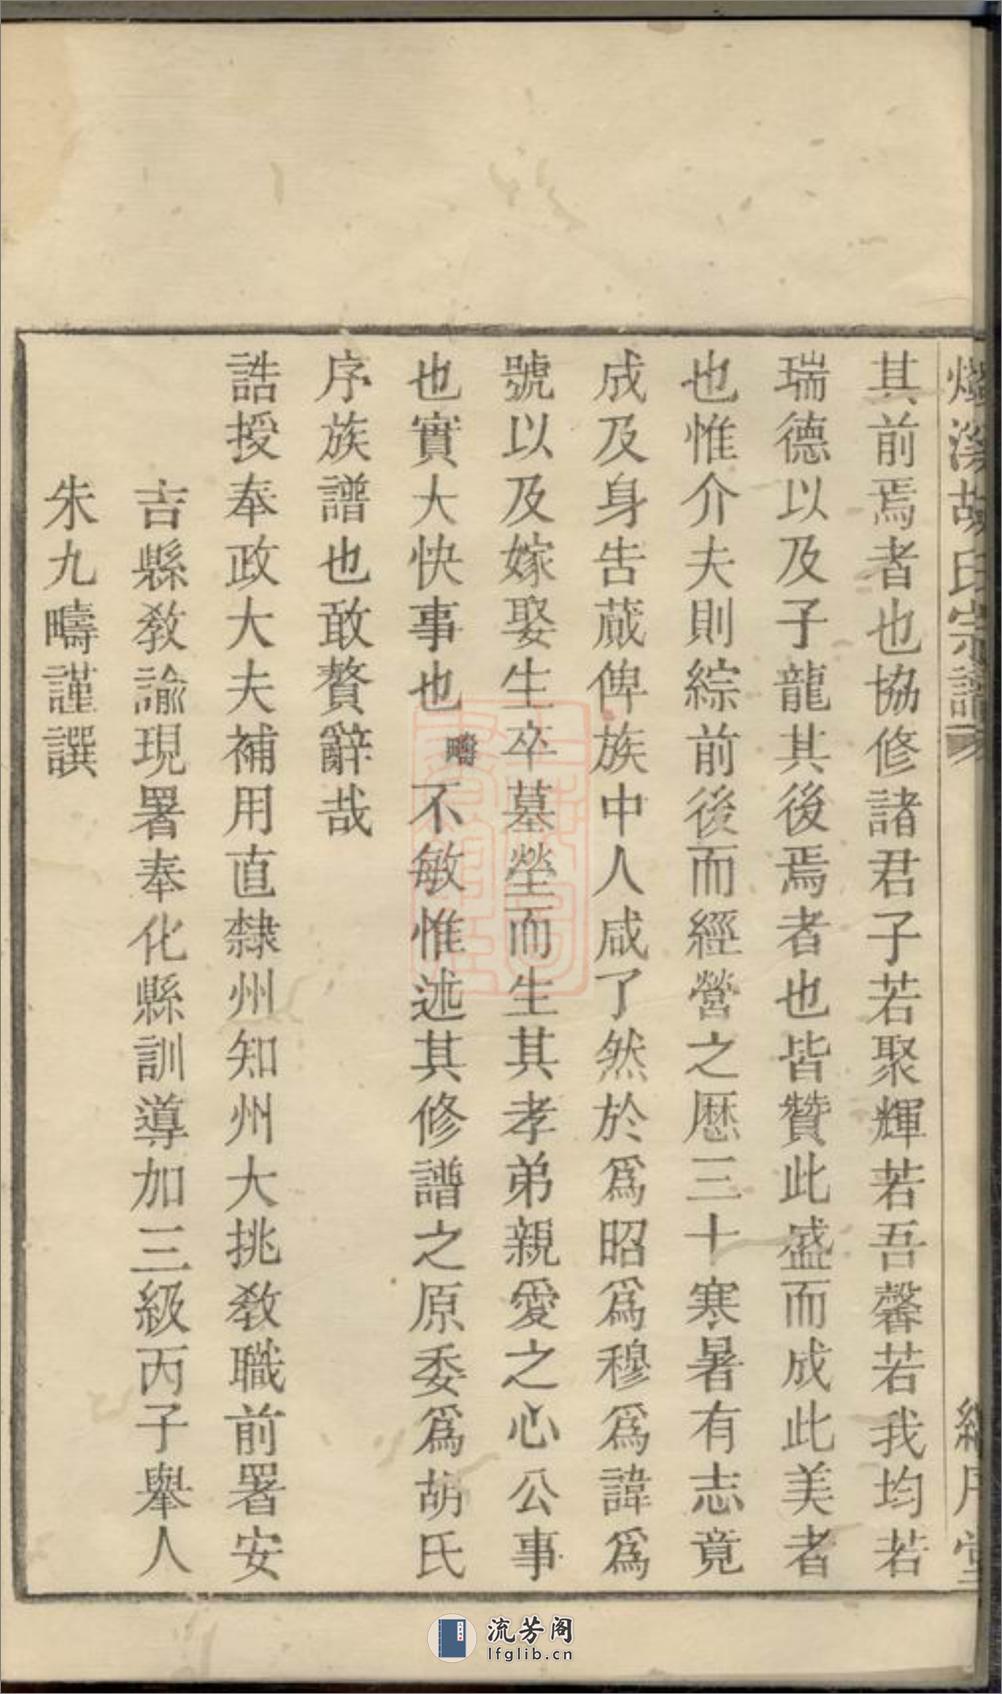 胡氏宗譜
其前焉者也協修諸君子若聚輝若吾馨若我均若
瑞德以及子龍其後焉者也皆贊此盛而成此美者
也惟介夫則綜前後而經營之歷三十寒暑有志竟
成及身告蕆俾族中人咸了然於爲昭爲穆爲諱爲
號以及嫁娶生卒墓塋而生其孝弟親愛之心公事
也實大快事也疇不敏惟述其修譜之原委爲胡氏
序族譜也敢贅辭哉
誥授奉政大夫補用直隸州知州大挑敎職前署安
吉縣敎諭現署奉化縣訓導加三級丙子舉人
朱九疇謹譔
流芳阁
lfglib.cn